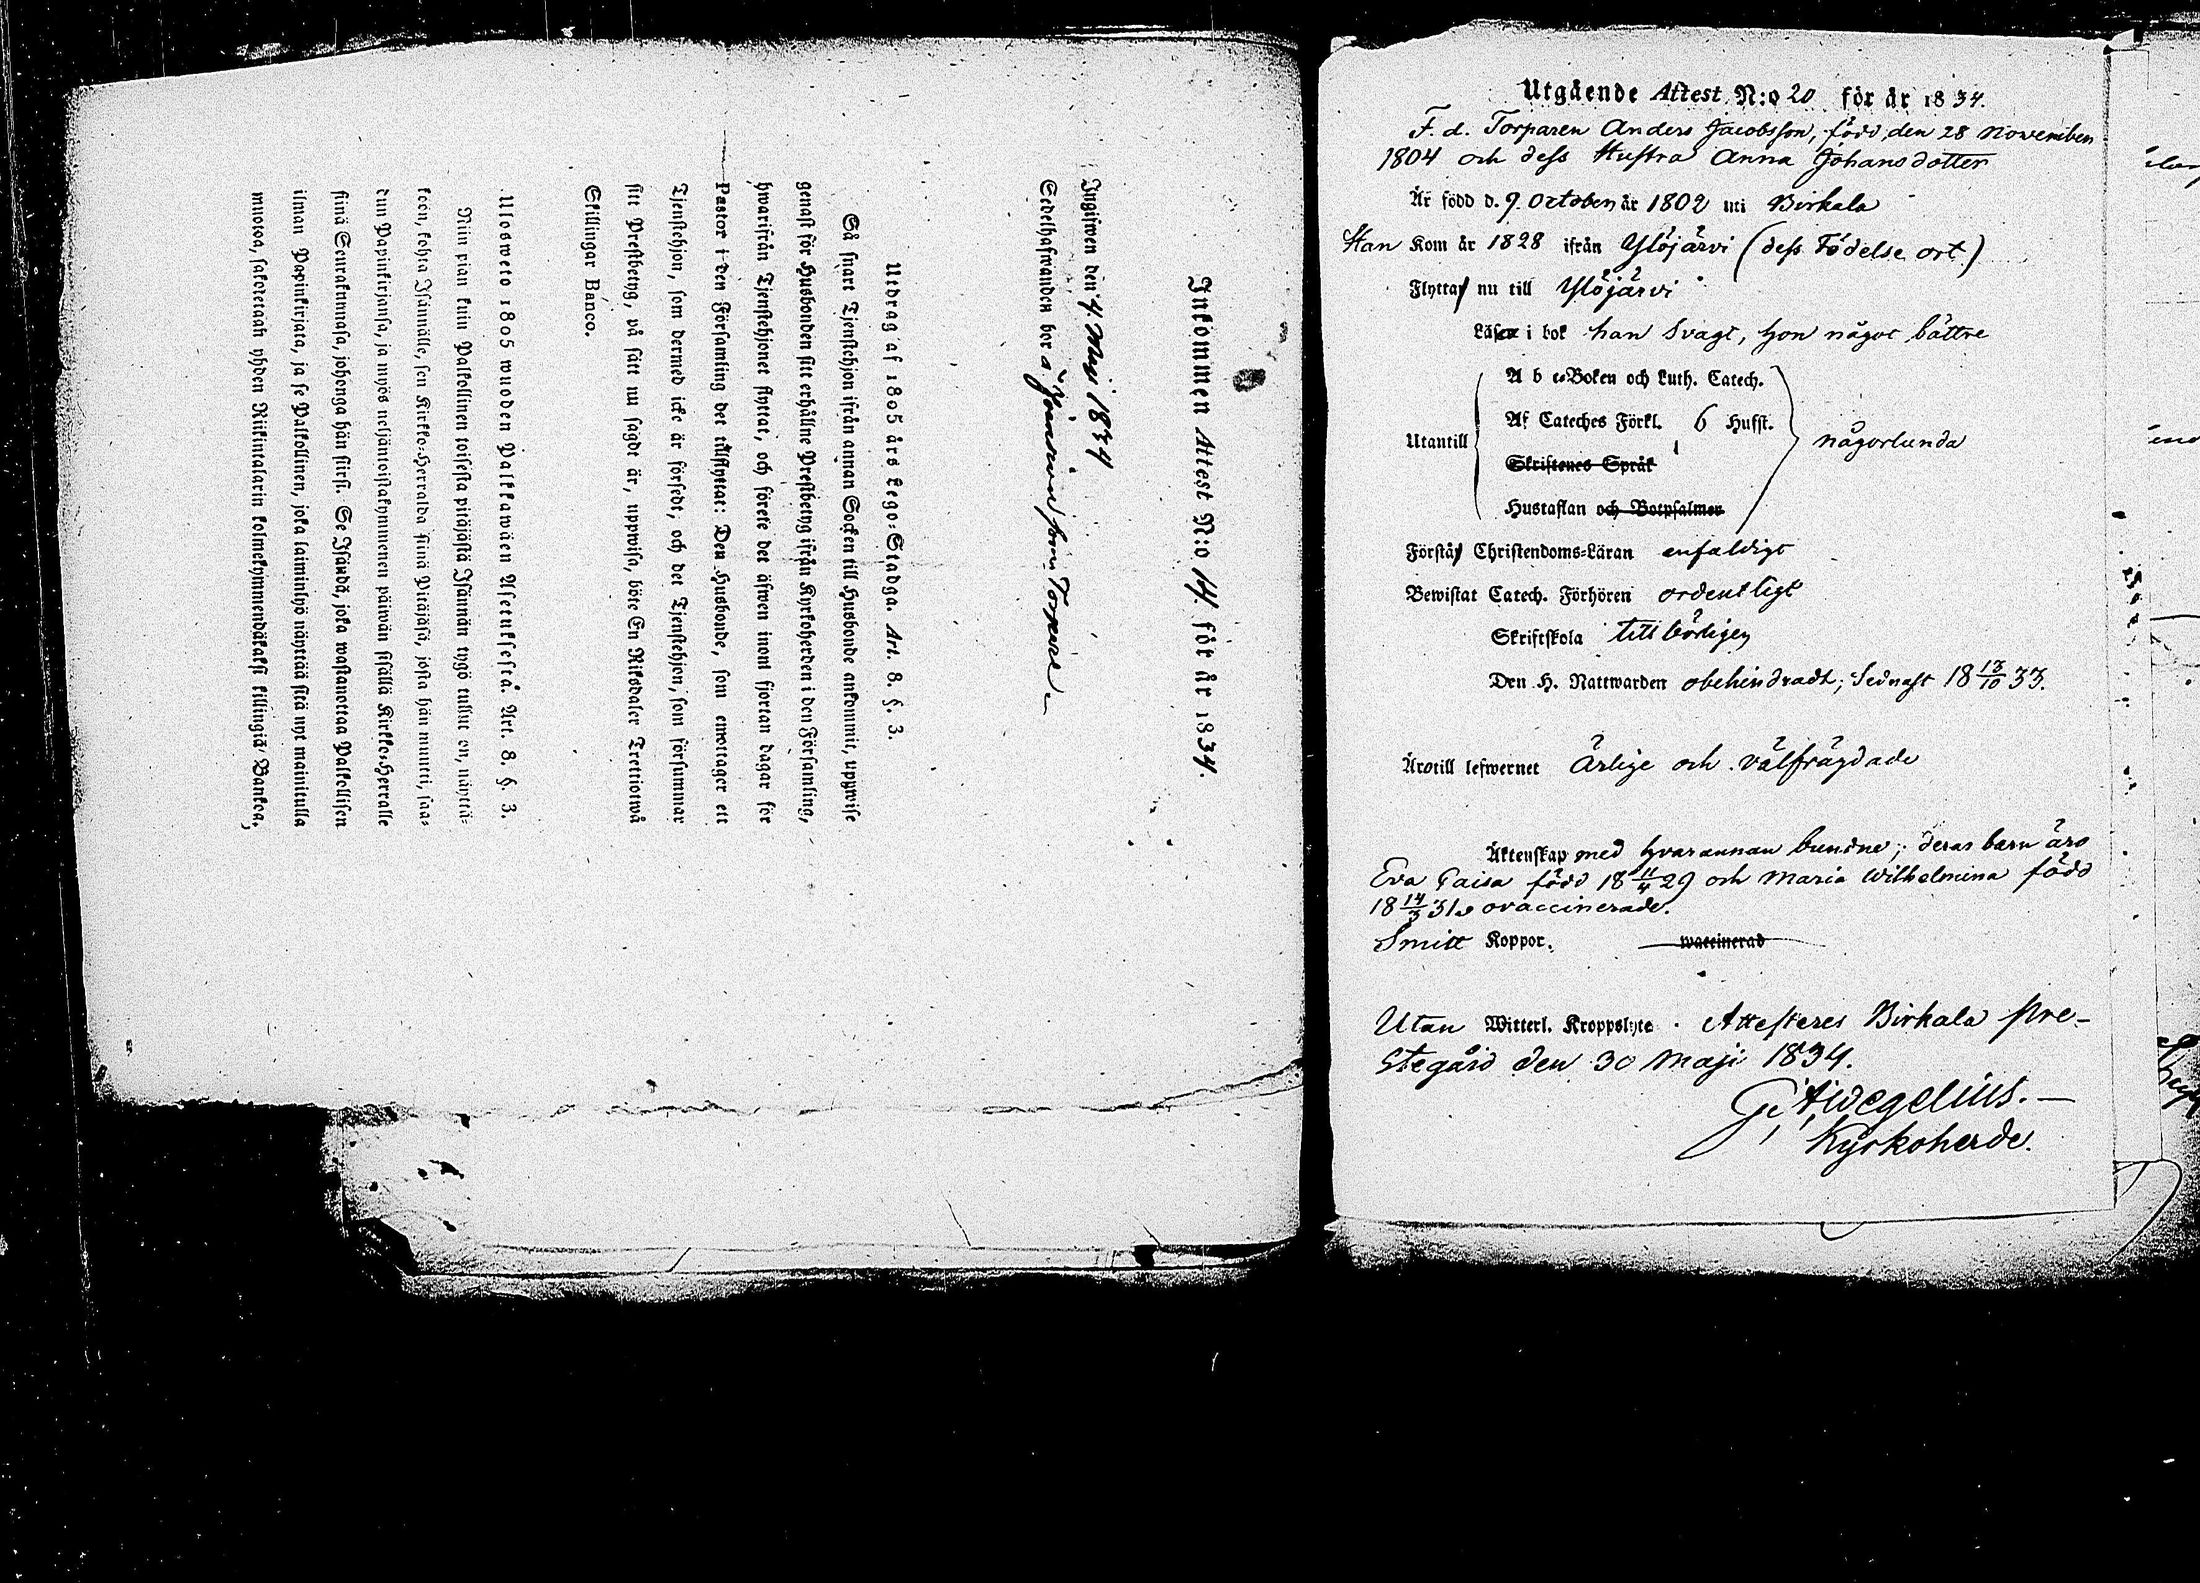 Inkommen Attest N:o 14. för år 1834.
Ingifwen den 4 Maji 1834
Sedelhafwanden bor å som Torpare
Utdrag af 1805 års Lego-Stadga. Art. 8. §. 3.
Så snart Tjenstehjon ifrån annan Socken till Husbonde ankommit, uppwise
genast för Husbonden sitt erhållne Prestbetyg ifrån Kyrkoherden i den Församling,
hwarifrån Tjenstehjonet flyttat, och förete det äfwen inom fjortan dagar för
Pastor i den Församling det tillflyttat: Den Husbonde, som emottager ett
Tjenstehjon, som dermed icke är försedt, och det Tjenstehjon, som försummar
sitt Prestbetyg, på sätt nu sagdt är, uppwisa, böte En Riksdaler Trettiotwå
Skillingar Banco.
Ulosweto 1805 wuoden Palkkawäen Asetuksesta. Art. 8. §. 3.
Niin pian kuin Palkollinen toisesta pitäjästä Isännän tygö tullut on, näyttä-
köön, kohta Isännälle, sen Kirkko-Herralda siinä Pitäjäsä, josta hän muutti, saa-
dun Papinkirjansa, ja myös neljäntoistakymmenen päiwän sisällä Kirkko-Herralle
siinä Seurakunnasa, johonga hän siirsi. Se Isändä, joka wastanottaa Palkollisen
ilman Papinkirjata, ja se Palkollinen, joka laiminlyö näyttää sitä nyt mainitulla
muotoa, sakotetaan yhden Riikintalarin kolmekymmendäkaksi killingiä Bankoa,
Utgående Attest N:o 20 för år 1834.
F. d. Torparen Anders Jacobsson, född den 28 November
1804 och dess Hustra Anna Johansdotter
Är född d. 9. October år 1802 uti Birkala
Han Kom år 1828 ifrån Ylöjärvi (dess Födelse ort)
Flytta nu till Ylöjärvi
Läsa i bok han svagt, hon något bättre
A b c-Boken och Luth. Catech.
Af Cateches Förkl. 6 Hufst.
Utantill någorlunda
Skriftenes Språk
Hustaflan och Botpsalmer
Förstå Christendoms-Läran enfaldigt
Bewistat Catech. Förhören ordentligt
Skriftskola tillbörligen
Den H. Nattwarden obehindradt; sednast 18 13/10 33.
Äro till lefwernet Ärlige och välfrägdade
Äktenskap med hvarannan bundne; deras barn äro
Eva Caisa född 18 11/4 29 och Maria Wilhelmina född
18 14/3 31 ovaccinerade.
Smitt Koppor. waccinerad
Utan Witterl. Kroppslyte. Attesteres Birkala Pre-
stegård den 30 Maji 1834.
G. Aidegelius.
Kyrkoherde.